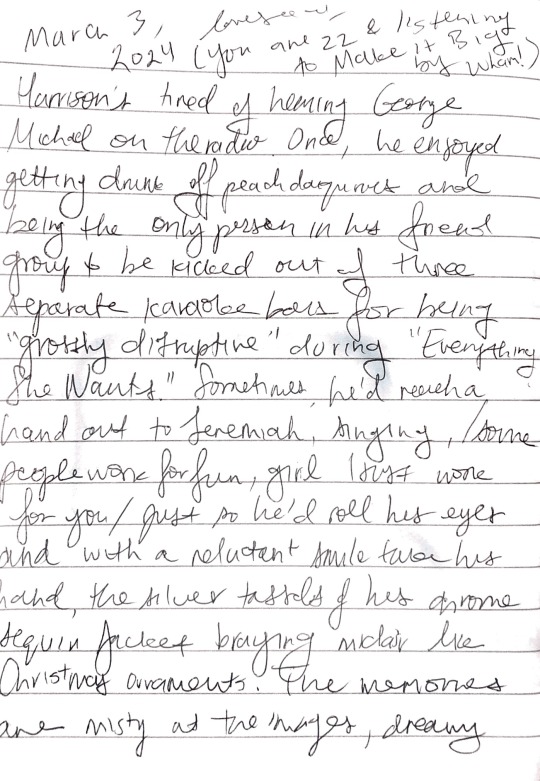 March 3,
2024 (You are 22 & listening
to Make it Big
by Wham!)
Harrison's tired of hearing George
Michael on the radio. Once, he enjoyed
getting drunk off peach daquiris and
being the only person in his friend
group to be kicked out of three
separate karaoke bars for being
"grossly disruptive" during "Everything
She Wants." Sometimes, he'd reach a
hand out to Jeremiah, singing, /some
people work for fun, girl I just work
for you/ just so he'd roll his eyes
and with a reluctant smile take his
hand, the silver tassels of his chrome
sequin jacket braying midair like
Christmas ornaments. The memories
are misty at the edges, dreamy